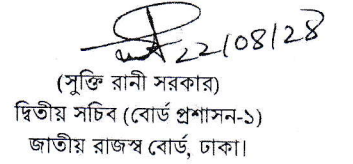 22/08/28
(সুক্তি রানী সরকার)
দ্বিতীয় সচিব (বোর্ড প্রশাসন-১)
জাতীয় রাজস্ব বোর্ড, ঢাকা।